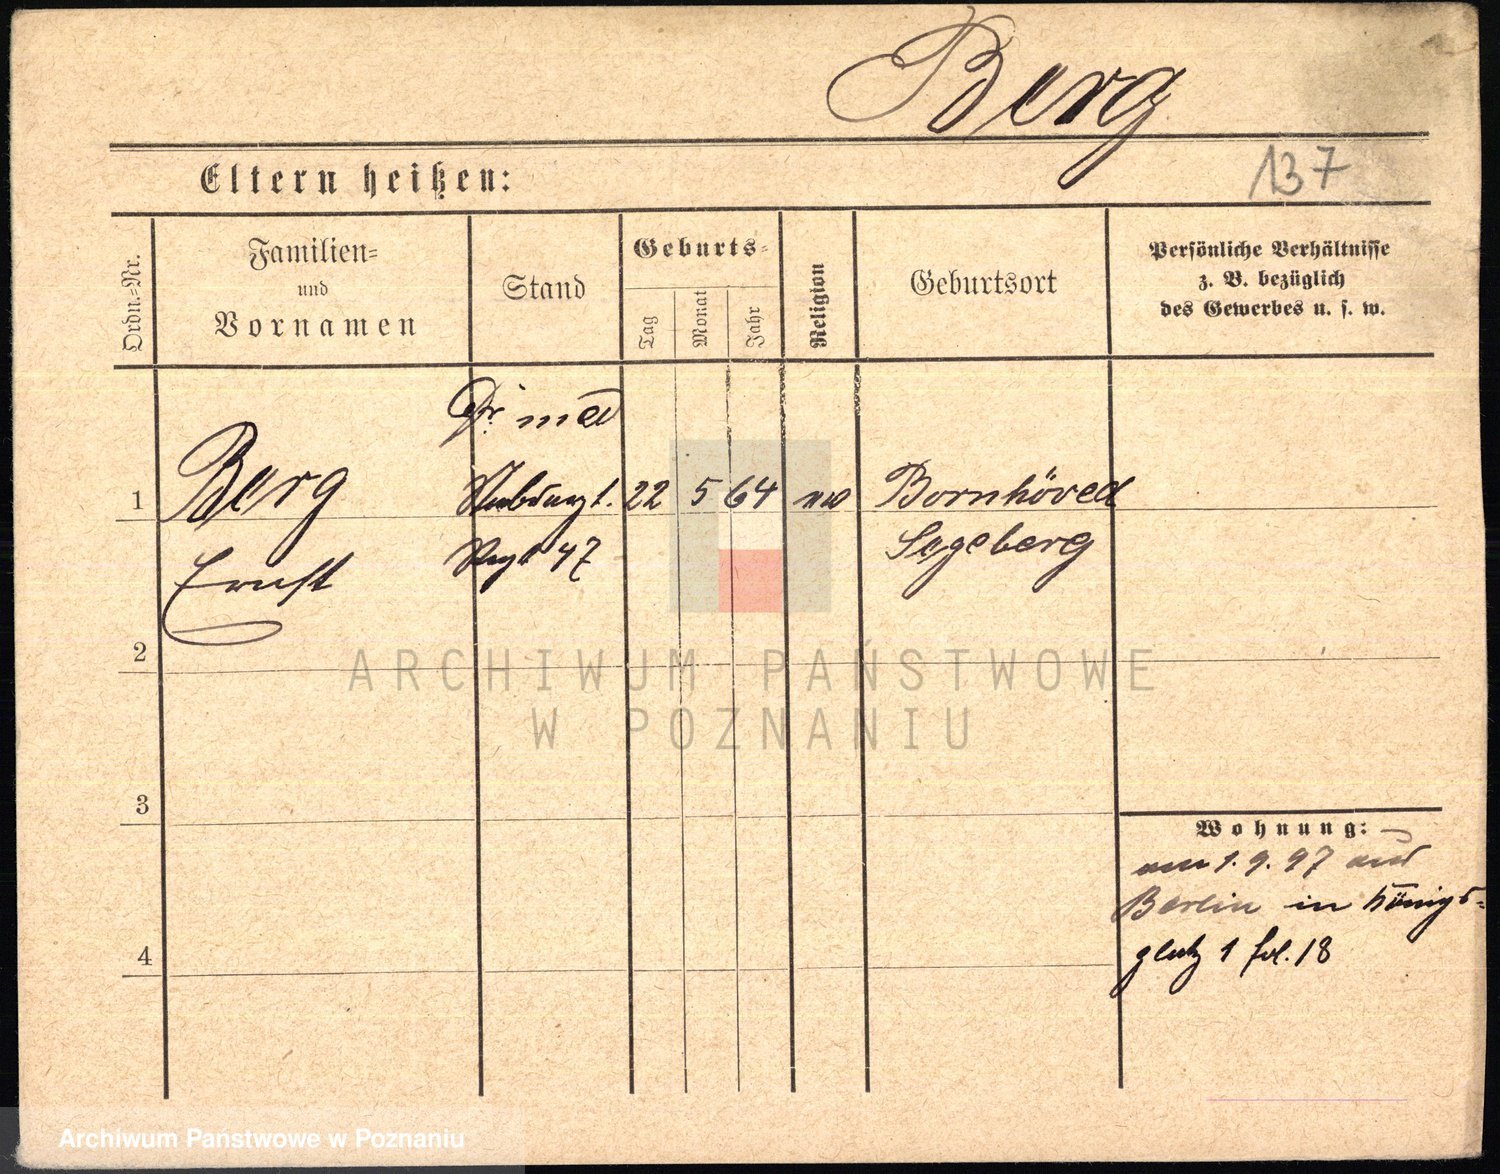 Berg
137
Eltern heißen:
Ordn.=Nr.
Familien=
und
Vornamen
Stand
Geburts=
Tag
Monat
Jahr
Religion
Geburtsort
Persönliche Verhältnisse
z. B. bezüglich
des Gewerbes u. s. w.
Dr. med
1
Berg
Stabsarzt. 22 5 64 Bornhöved
Ernst
Regt 47
Segeberg
2
ARCHIWUM PAŃSTWOWE
W POZNANIU
3
4
Wohnung:
am 1. 9. 97 aus
Berlin in Königs-
platz 1 fol. 18
Archiwum Państwowe w Poznaniu